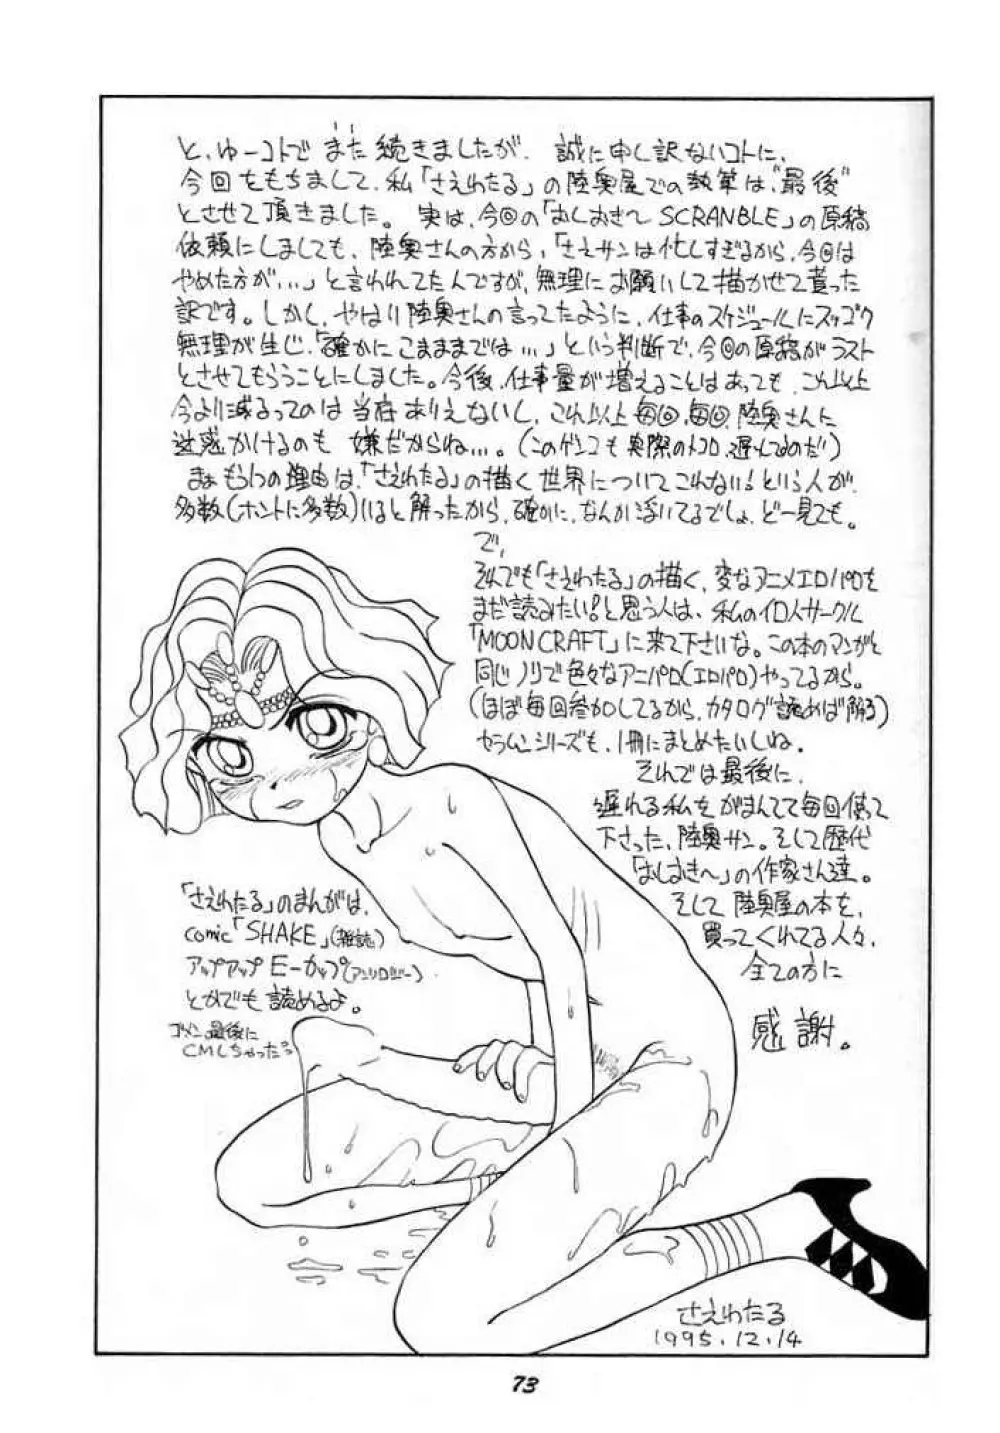 と、ゆーコトで また 続きましたが、 誠に申し訳ないコトに、
今回をもちまして、私「さえわたる」の陸奥屋での執筆は"最後"
とさせて頂きました。 実は、今回の「おしおき〜 SCRANBLE」の原稿
依頼にしましても、陸奥さんの方から、「さえサンは忙しすぎるから、今回は
やめた方が…」と言われてたんですが、無理にお願いして描かせて貰った
訳です。しかし、やはり陸奥さんの言ってたように、仕事のスケジュールにスッゴク
無理が生じ、「確かにこまままでは…」という判断で、今回の原稿がラスト
とさせてもらうことにしました。今後、仕事量が増えることはあっても、これ以上
今より減るってのは当存ありえないし、これ以上毎回、毎回、陸奥さんに
迷惑かけるのも 嫌だからね…。(このゲンコも実際のトコロ、遅れてるのだ)
まぁもう1つの理由は、「さえわたる」の描く世界についてこれない!という人が、
多数(ホントに多数)いると解ったから、確かに、なんか浮いてるでしょ、ど一見ても。
で、
それでも「さえわたる」の描く、変なアニメエロパロを
まだ読みたい!と思う人は、私のイロ人サークル
「MOON CRAFT」に来て下さいな。この本のマンガと
同じノリで色々なアニパロ(エロパロ)やってるから。
(ほぼ毎回参加してるから、カタログ読めば解る)
セラムンシリーズも、1冊にまとめたいしね。
それでは最後に、
遅れる私をがまんてて毎回使って
下さった、陸奥サン。そして歴代
「おしおき〜」の作家さん達。
そして 陸奥屋の本を、
買ってくれてる人々、
全ての方に
感謝。
「さえわたる」のまんがは、
comic「SHAKE」(雑誌)
アップアップ Eーカップ(アンソロジー)
とかでも読めるよ。
ゴメン、最後に
CMしちゃったっ
さえわたる
1995.12.14
73